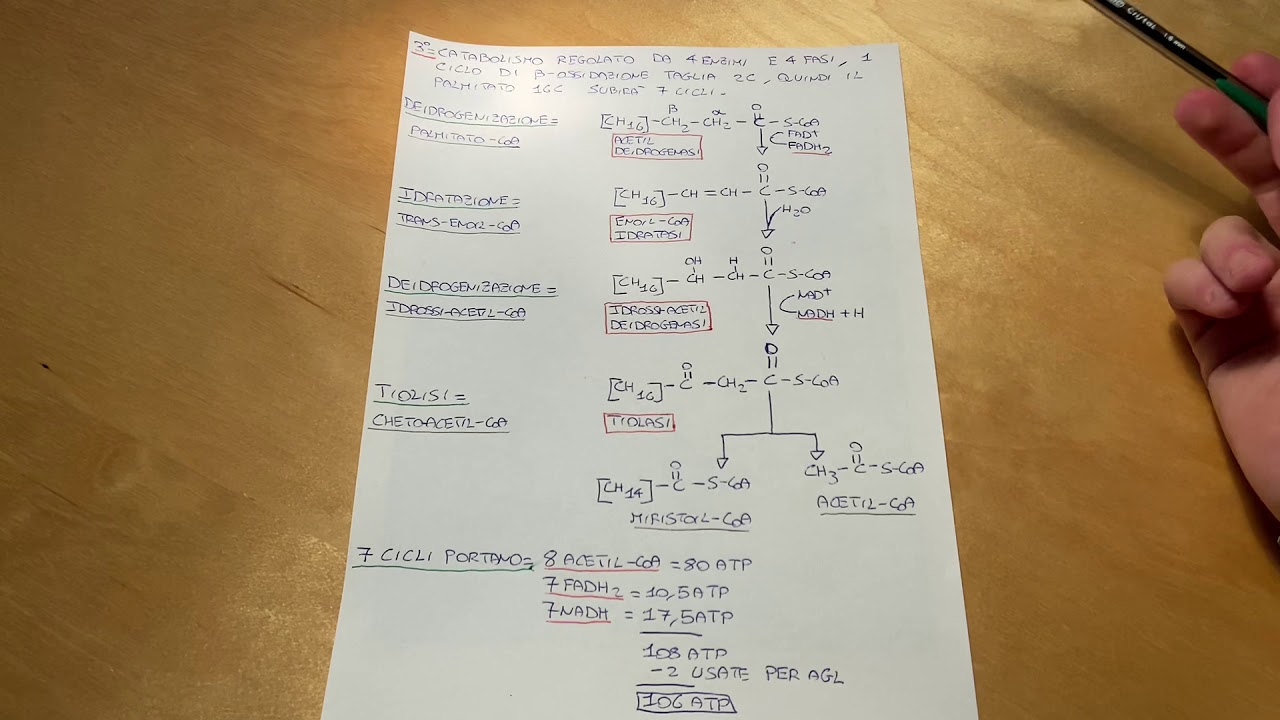 3°= CATABOLISMO REGOLATO DA 4 ENZIMI E 4 FASI, 1
CICLO DI β-OSSIDAZIONE TAGLIA 2C, QUINDI IL
PALMITATO 16C SUBIRA' 7 CICLI.
DEIDROGENIZAZIONE=
PALMITATO-CoA
β α O
[CH16]-CH2-CH2-C-S-CoA
ACETIL
DEIDROGENASI
FAD+
FADH2
IDRATAZIONE=
TRANS-ENOIL-CoA
O
[CH16]-CH=CH-C-S-CoA
ENOIL-CoA
IDRATASI
H2O
DEIDROGENIZAZIONE=
IDROSSI-ACETIL-CoA
OH H O
[CH16]-CH-CH-C-S-CoA
IDROSSI-ACETIL
DEIDROGENASI
NAD+
NADH + H
TIOLISI=
CHETOACETIL-CoA
O O
[CH16]-C-CH2-C-S-CoA
TIOLASI
O
[CH14]-C-S-CoA
MIRISTOIL-CoA
O
CH3-C-S-CoA
ACETIL-CoA
7 CICLI PORTANO= 8 ACETIL-CoA = 80 ATP
7 FADH2 = 10,5 ATP
7 NADH = 17,5 ATP
108 ATP
-2 USATE PER AGL
106 ATP
Cristal 1.6 mm